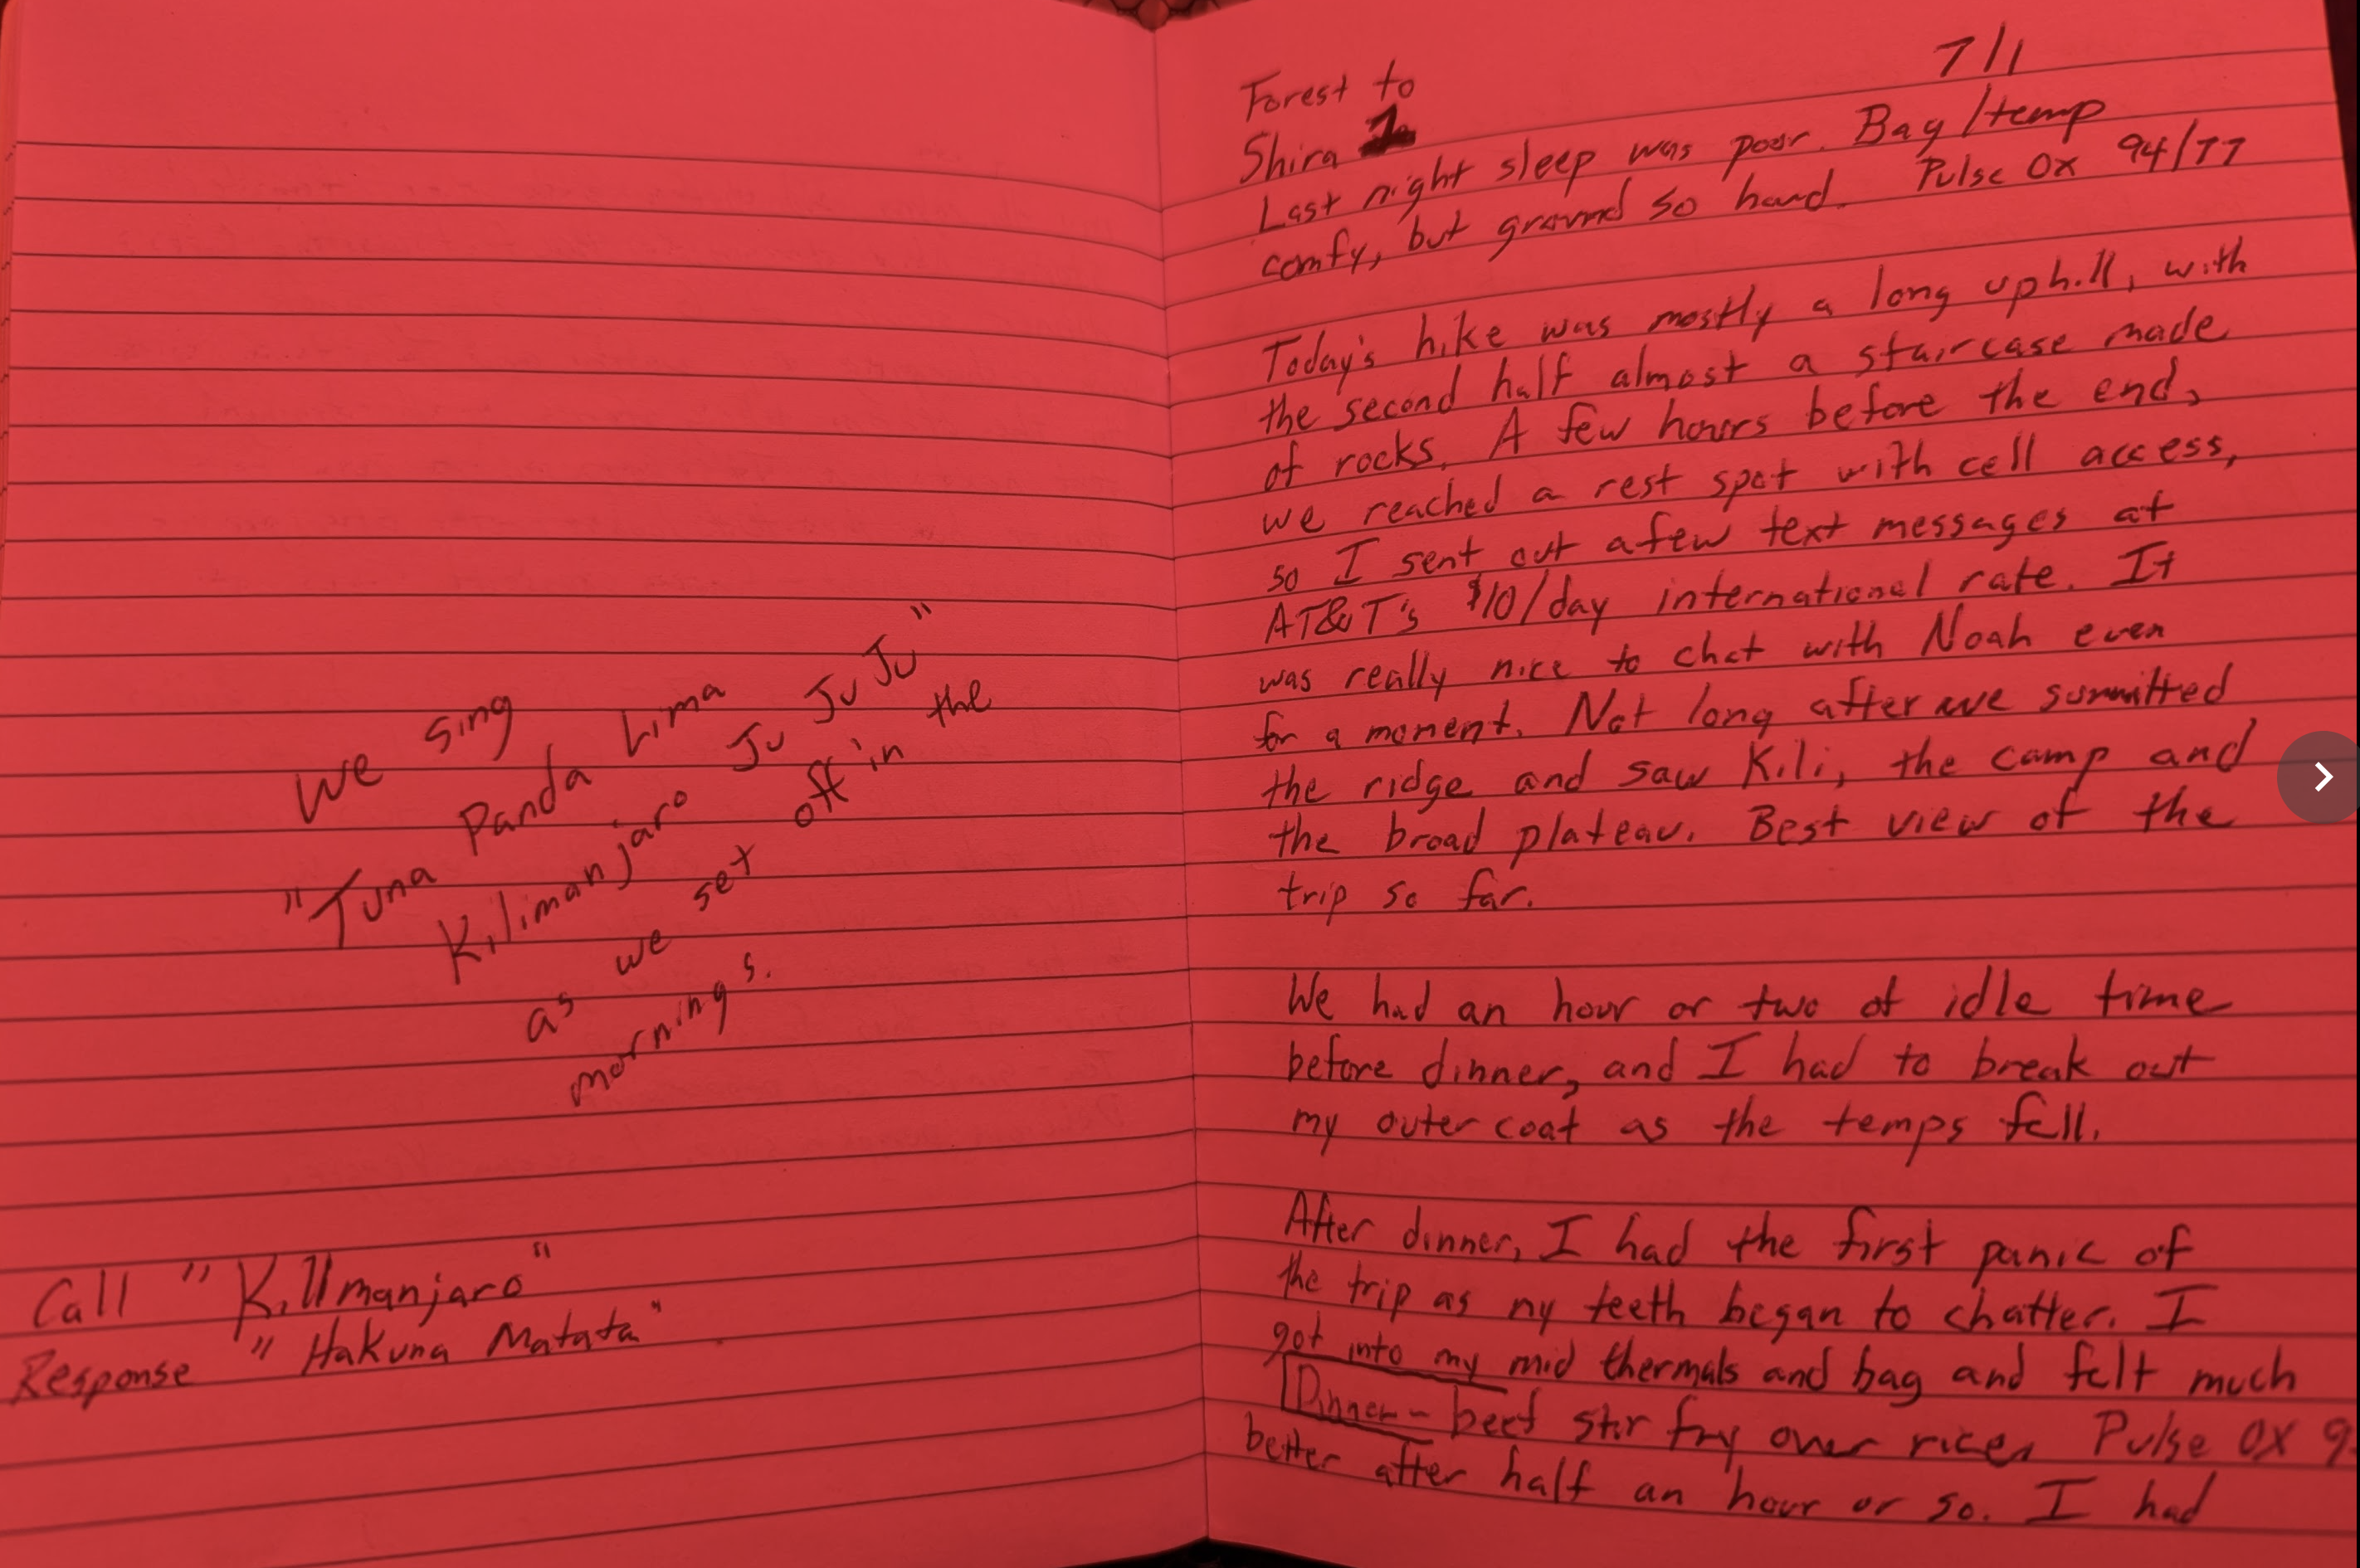 We sing
"Tuna Panda Lima
Kilimanjaro Ju Ju Ju"
as we set off in the
mornings.
Call "Killmanjaro"
Response "Hakuna Matata"
7/1
Forest to
Shira 1
Last night sleep was poor. Bag/temp
comfy, but ground so hard. Pulse Ox 94/77
Today's hike was mostly a long uphill, with
the second half almost a staircase made
of rocks. A few hours before the end,
we reached a rest spot with cell access,
so I sent out a few text messages at
AT&T's $10/day international rate. It
was really nice to chat with Noah even
for a moment. Not long after we summitted
the ridge and saw Kili, the camp and
the broad plateau. Best view of the
trip so far.
We had an hour or two of idle time
before dinner, and I had to break out
my outer coat as the temps fell.
After dinner, I had the first panic of
the trip as my teeth began to chatter. I
got into my mid thermals and bag and felt much
Dinner - beef stir fry over rice. Pulse OX 9
better after half an hour or so. I had